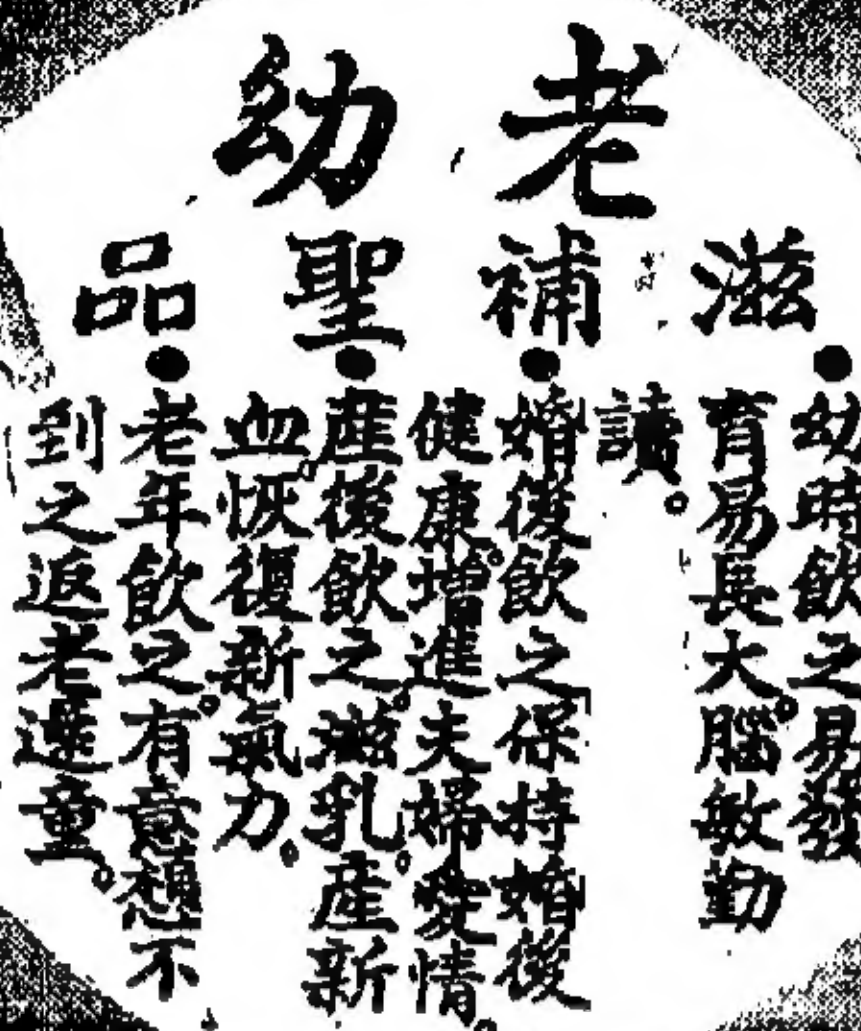 老幼
滋補聖品
●幼時飲之易發
育易長大。腦敏勤
讀。
●婚後飲之保持婚後
健康。增進夫婦愛情。
●產後飲之。滋乳。產新
血。恢復新氣力。
●老年飲之。有意想不
到之返老還童。